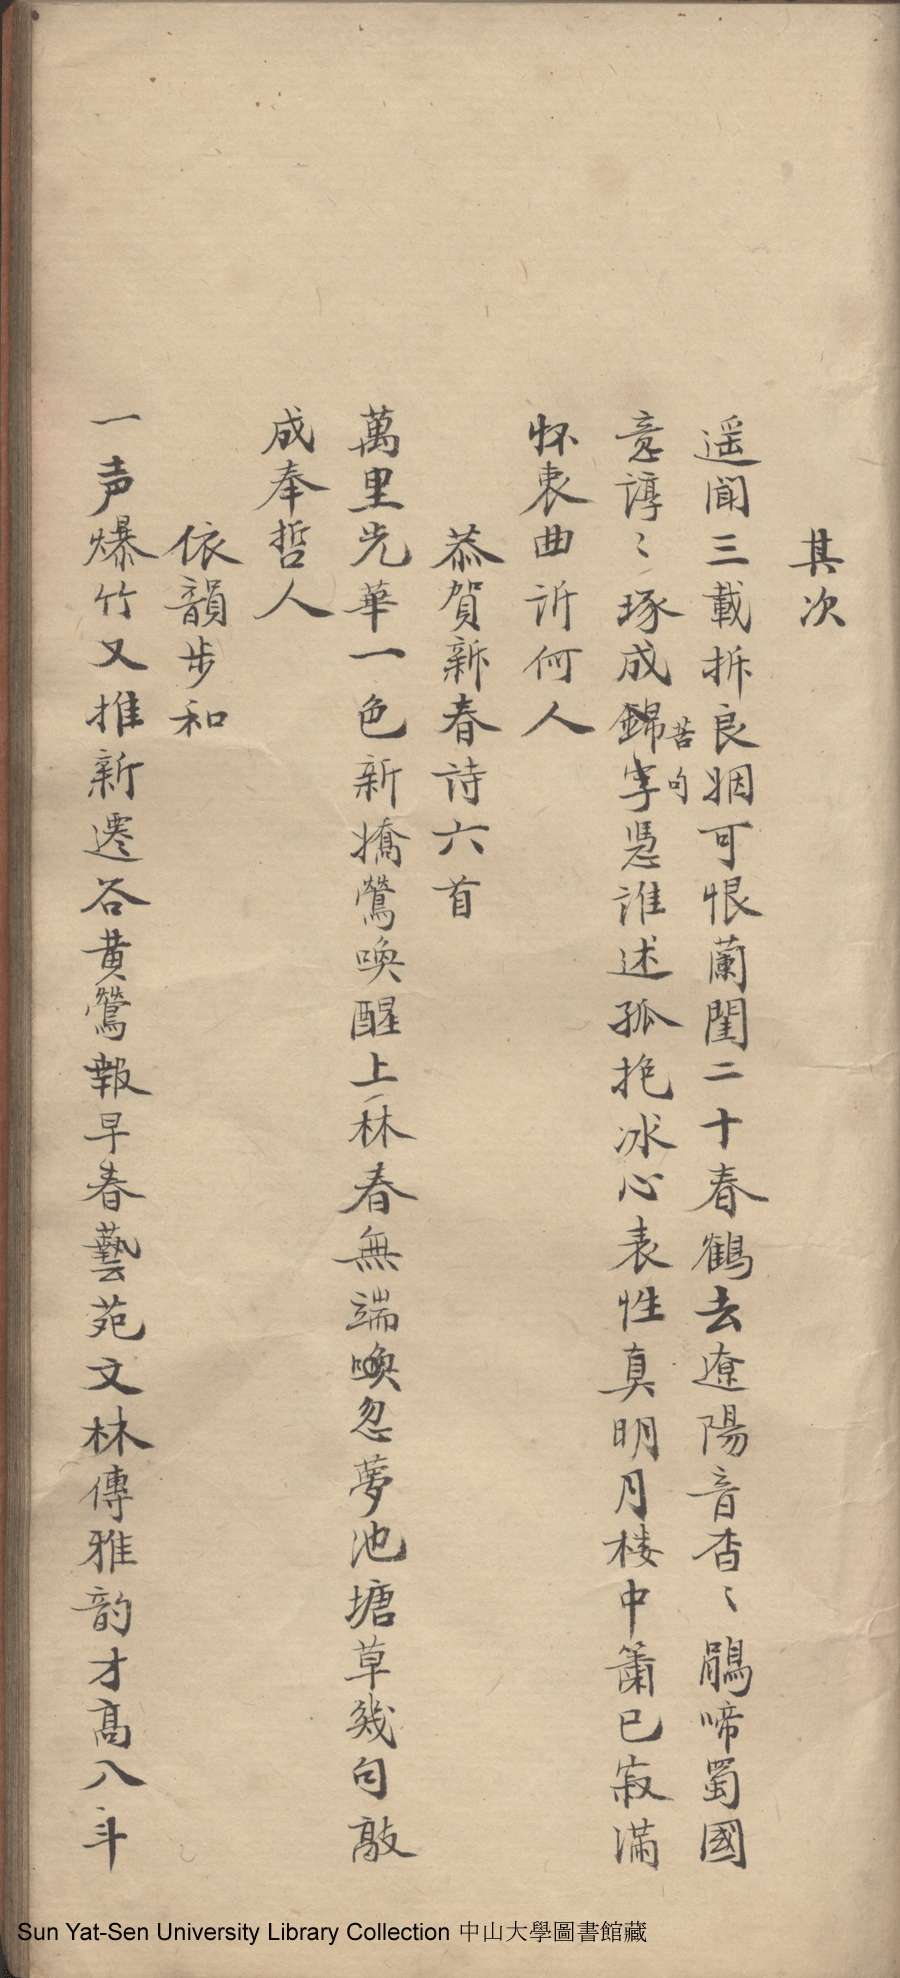 其次
遥闻三載拆良姻可恨蘭閨二十春鶴去遼陽音杳〻鵑啼蜀國
意諄〻琢成錦字憑誰述孤抱冰心表性真明月楼中簫已寂滿
苦句
怀衷曲訴何人
恭賀新春詩六首
萬里光華一色新嬌鶯喚醒上林春無端喚忽夢池塘草幾句敲
成奉哲人
依韻步和
一声爆竹又推新遷谷黄鶯報早春藝苑文林傳雅韵才高八斗
Sun Yat-Sen University Library Collection 中山大學圖書館藏